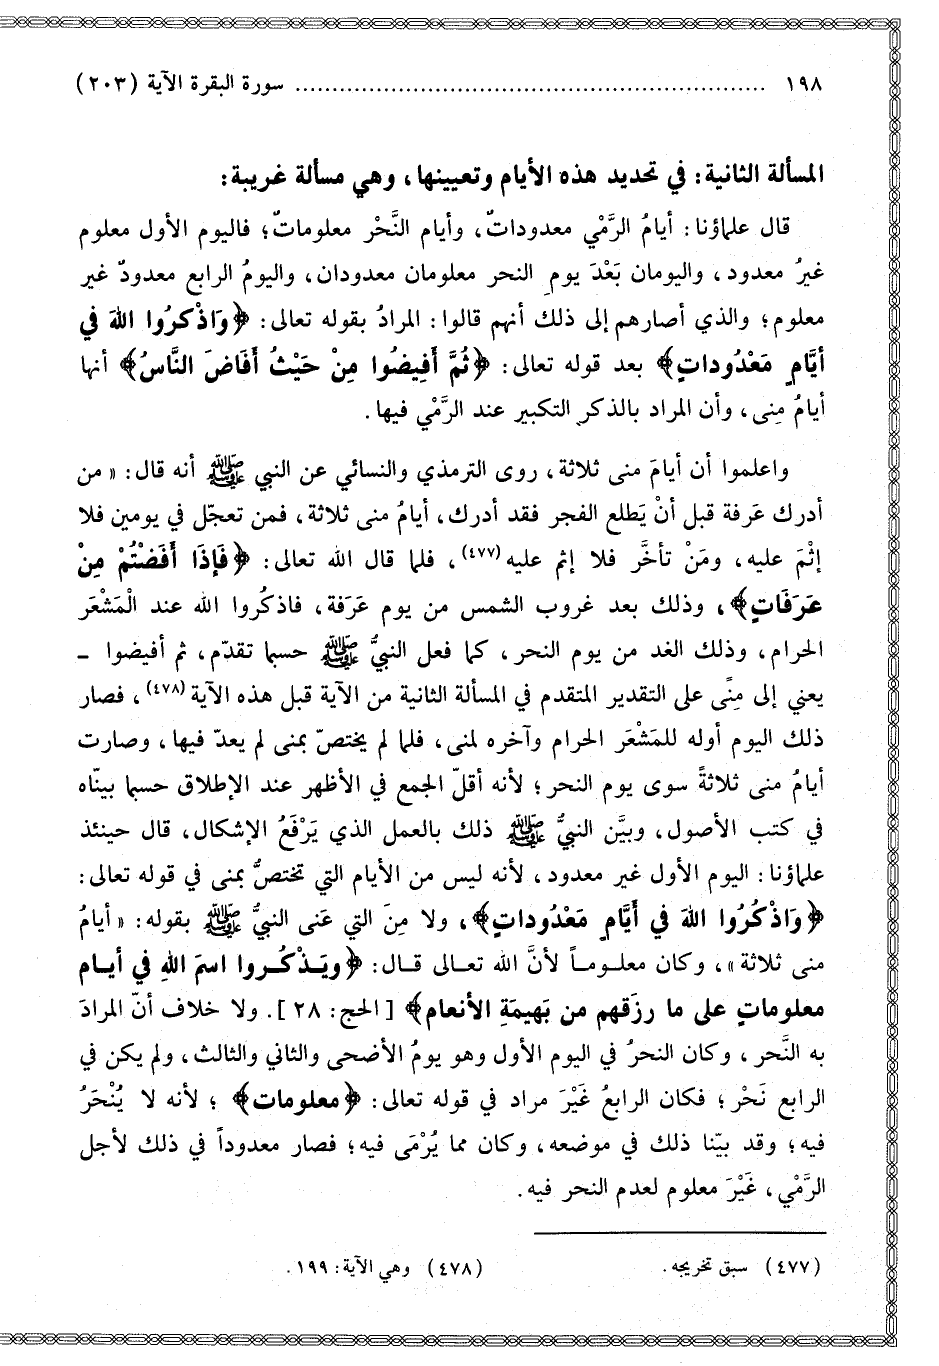 ١٩٨ ................................................................ سورة البقرة الآية (٢٠٣)
المسألة الثانية: في تحديد هذه الأيام وتعيينها، وهي مسألة غريبة:
قال علماؤنا: أيامُ الرَّمْي معدوداتٌ، وأيام النَّحْر معلوماتٌ؛ فاليوم الأول معلوم
غيرُ معدود، واليومان بَعْدَ يومِ النحر معلومان معدودان، واليومُ الرابع معدودٌ غير
معلوم؛ والذي أصارهم إلى ذلك أنهم قالوا: المرادُ بقوله تعالى: ﴿وَاذْكرُوا اللهَ في
أيَّامٍ مَعْدُوداتٍ﴾ بعد قوله تعالى: ﴿ثُمَّ أَفِيضُوا مِنْ حَيْثُ أَفَاضَ النَّاسُ﴾ أنها
أيامُ مِنى، وأن المراد بالذكرِ التكبير عند الرَّمْي فيها.
واعلموا أن أيامَ منى ثلاثة، روى الترمذي والنسائي عن النبي ﷺ أنه قال: « من
أدرك عَرفة قبل أنْ يَطلع الفجر فقد أدرك، أيامُ منى ثلاثة، فمن تعجّل في يومين فلا
إثْمَ عليه، ومَنْ تأخَّر فلا إثم عليه(٤٧٧)، فلما قال الله تعالى: ﴿فَإذَا أَفَضْتُمْ مِنْ
عَرَفَاتٍ﴾، وذلك بعد غروب الشمس من يوم عَرَفة، فاذكُروا الله عند الْمَشْعَر
الحرام، وذلك الغد من يوم النحر، كما فعل النبيُّ ﷺ حسبما تقدّم، ثم أفيضوا -
يعني إلى مِنًى على التقدير المتقدم في المسألة الثانية من الآية قبل هذه الآية(٤٧٨)، فصار
ذلك اليوم أوله للمَشْعَر الحرام وآخره لمنى، فلما لم يختصّ بمنى لم يعدّ فيها، وصارت
أيامُ منى ثلاثةً سوى يوم النحر؛ لأنه أقلّ الجمع في الأظهر عند الإطلاق حسبما بينّاه
في كتب الأصول، وبيَّن النبيُّ ﷺ ذلك بالعمل الذي يَرْفَعُ الإشكال، قال حينئذ
علماؤنا: اليوم الأول غير معدود، لأنه ليس من الأيام التي تختصُّ بمنى في قوله تعالى:
﴿وَاذْكُرُوا اللهَ في أَيَّامٍ مَعْدُوداتٍ﴾، ولا مِنَ التي عَنى النبيُّ ﷺ بقوله: « أيامُ
منى ثلاثة »، وكان معلوماً لأنَّ الله تعالى قال: ﴿ويَذْكُروا اسمَ اللهِ في أيام
معلوماتٍ على ما رزَقهم من بَهيمَةِ الأنعام﴾ [الحج: ٢٨]. ولا خلاف أنّ المرادَ
به النَّحر، وكان النحرُ في اليوم الأول وهو يومُ الأضحى والثاني والثالث، ولم يكن في
الرابع نَحْر؛ فكان الرابعُ غَيْرَ مراد في قوله تعالى: ﴿معلومات﴾؛ لأنه لا يُنْحَرُ
فيه؛ وقد بيّنا ذلك في موضعه، وكان مما يُرْمَى فيه؛ فصار معدوداً في ذلك لأجل
الرَّمْي، غَيْرَ معلوم لعدم النحر فيه.
(٤٧٧) سبق تخريجه.
(٤٧٨) وهي الآية: ١٩٩.